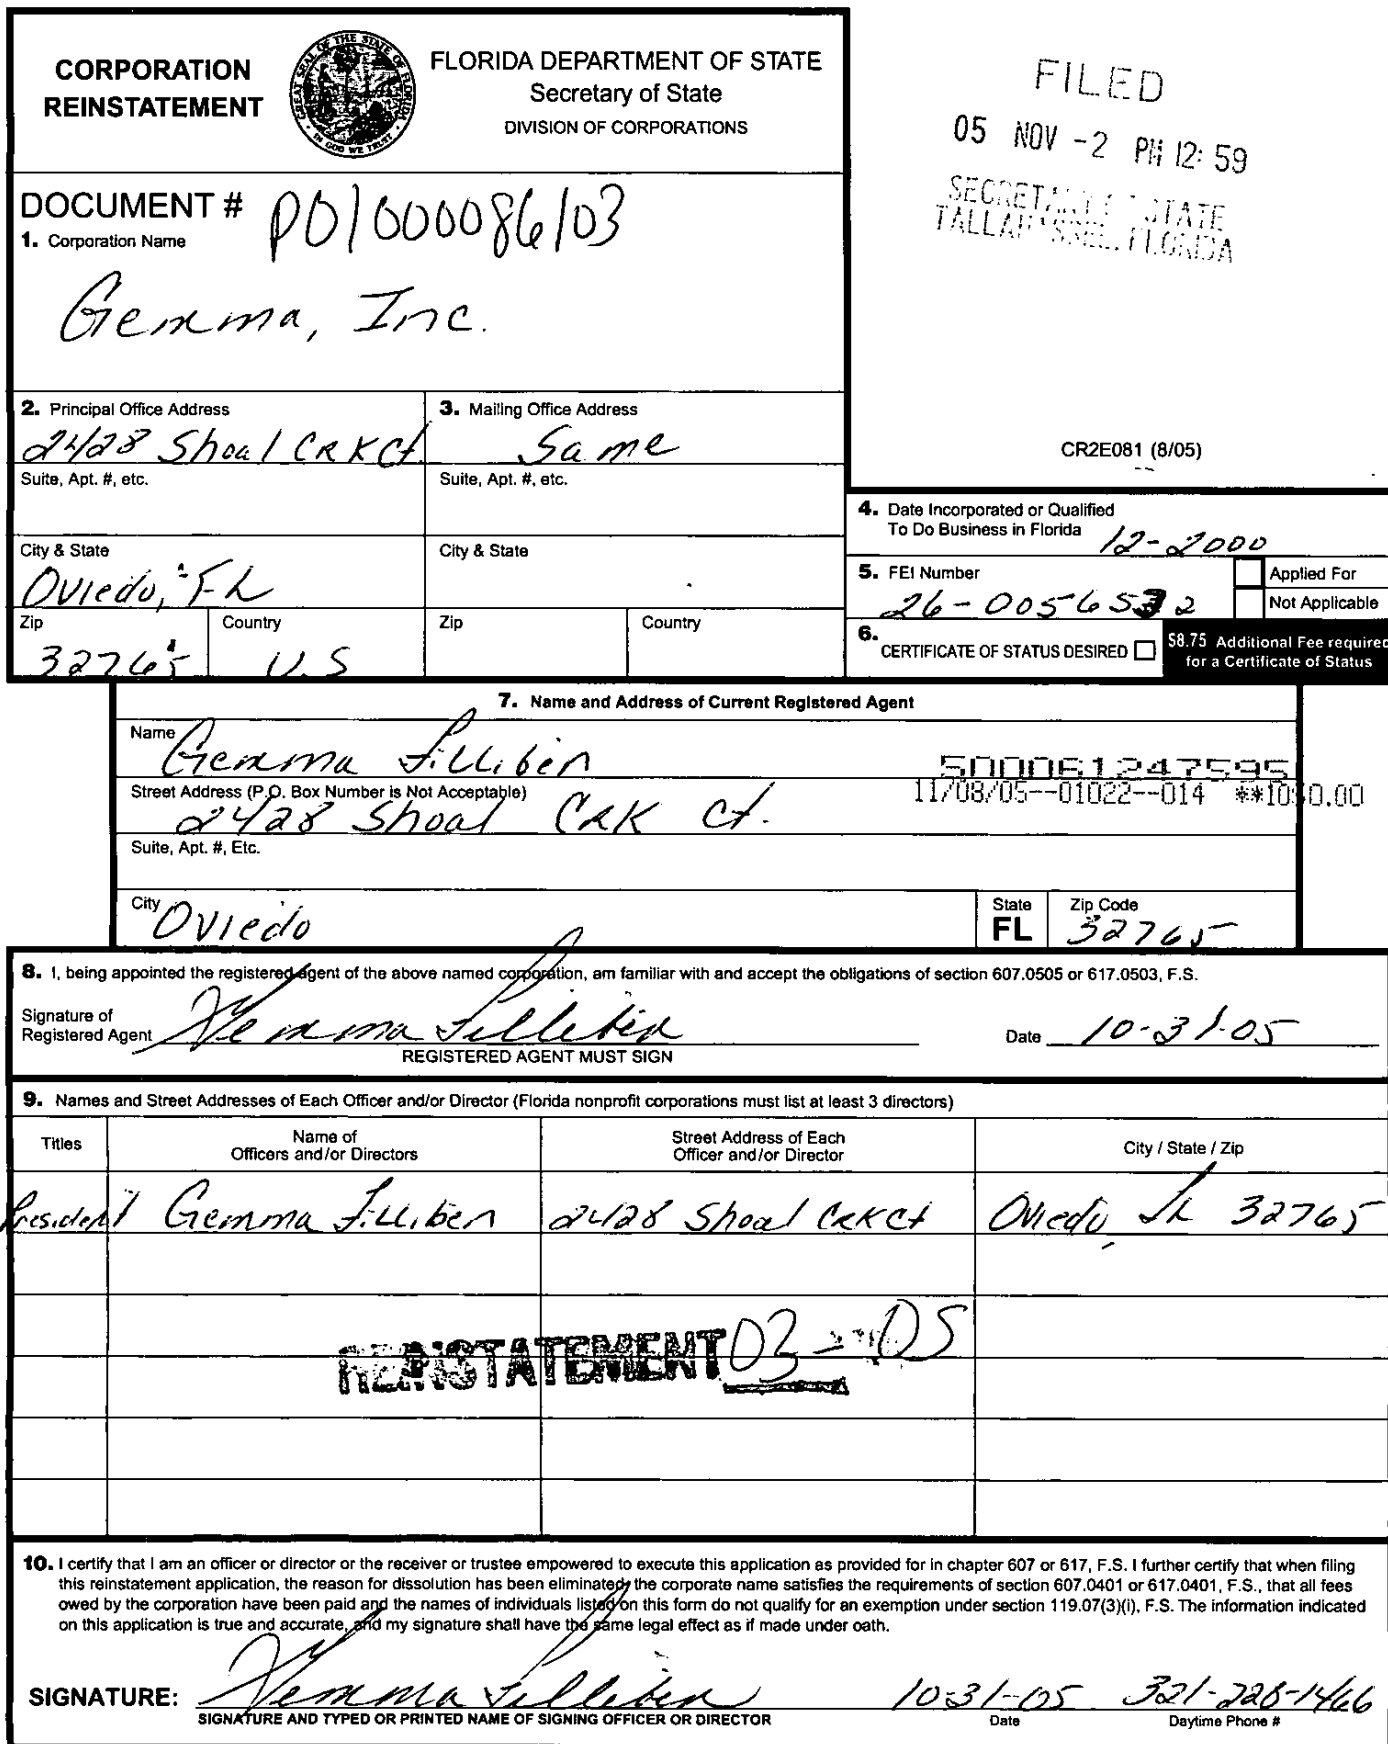 CORPORATION
REINSTATEMENT
GREAT SEAL OF THE STATE OF FLORIDA
IN GOD WE TRUST
FLORIDA DEPARTMENT OF STATE
Secretary of State
DIVISION OF CORPORATIONS
FILED
05 NOV -2 PM 12:59
SECRETARY STATE
TALLAHASSEE, FLORIDA
DOCUMENT # P01000086103
1. Corporation Name
Gemma, Inc.
2. Principal Office Address
2428 Shoal CRK Ct
3. Mailing Office Address
Same
CR2E081 (8/05)
Suite, Apt. #, etc.
Suite, Apt. #, etc.
4. Date Incorporated or Qualified
To Do Business in Florida 12-2000
City & State
Oviedo, FL
City & State
5. FEI Number
26-00565 2
Applied For
Not Applicable
Zip
32765
Country
U.S
Zip
Country
6. CERTIFICATE OF STATUS DESIRED
$8.75 Additional Fee required
for a Certificate of Status
7. Name and Address of Current Registered Agent
Name
Gemma Filliben
500061247595
11/08/05--01022--014 **1050.00
Street Address (P.O. Box Number is Not Acceptable)
2428 Shoal CRK Ct.
Suite, Apt. #, Etc.
City
Oviedo
State
FL
Zip Code
32765
8. I, being appointed the registered agent of the above named corporation, am familiar with and accept the obligations of section 607.0505 or 617.0503, F.S.
Signature of
Registered Agent Gemma Filliben
Date 10-31-05
REGISTERED AGENT MUST SIGN
9. Names and Street Addresses of Each Officer and/or Director (Florida nonprofit corporations must list at least 3 directors)
Titles
Name of
Officers and/or Directors
Street Address of Each
Officer and/or Director
City / State / Zip
President Gemma Filliben 2428 Shoal CRK Ct Oviedo, FL 32765
REINSTATEMENT 03 - 05
10. I certify that I am an officer or director or the receiver or trustee empowered to execute this application as provided for in chapter 607 or 617, F.S. I further certify that when filing
this reinstatement application, the reason for dissolution has been eliminated, the corporate name satisfies the requirements of section 607.0401 or 617.0401, F.S., that all fees
owed by the corporation have been paid and the names of individuals listed on this form do not qualify for an exemption under section 119.07(3)(i), F.S. The information indicated
on this application is true and accurate, and my signature shall have the same legal effect as if made under oath.
SIGNATURE: Gemma Filliben 10-31-05 321-228-1466
SIGNATURE AND TYPED OR PRINTED NAME OF SIGNING OFFICER OR DIRECTOR
Date
Daytime Phone #